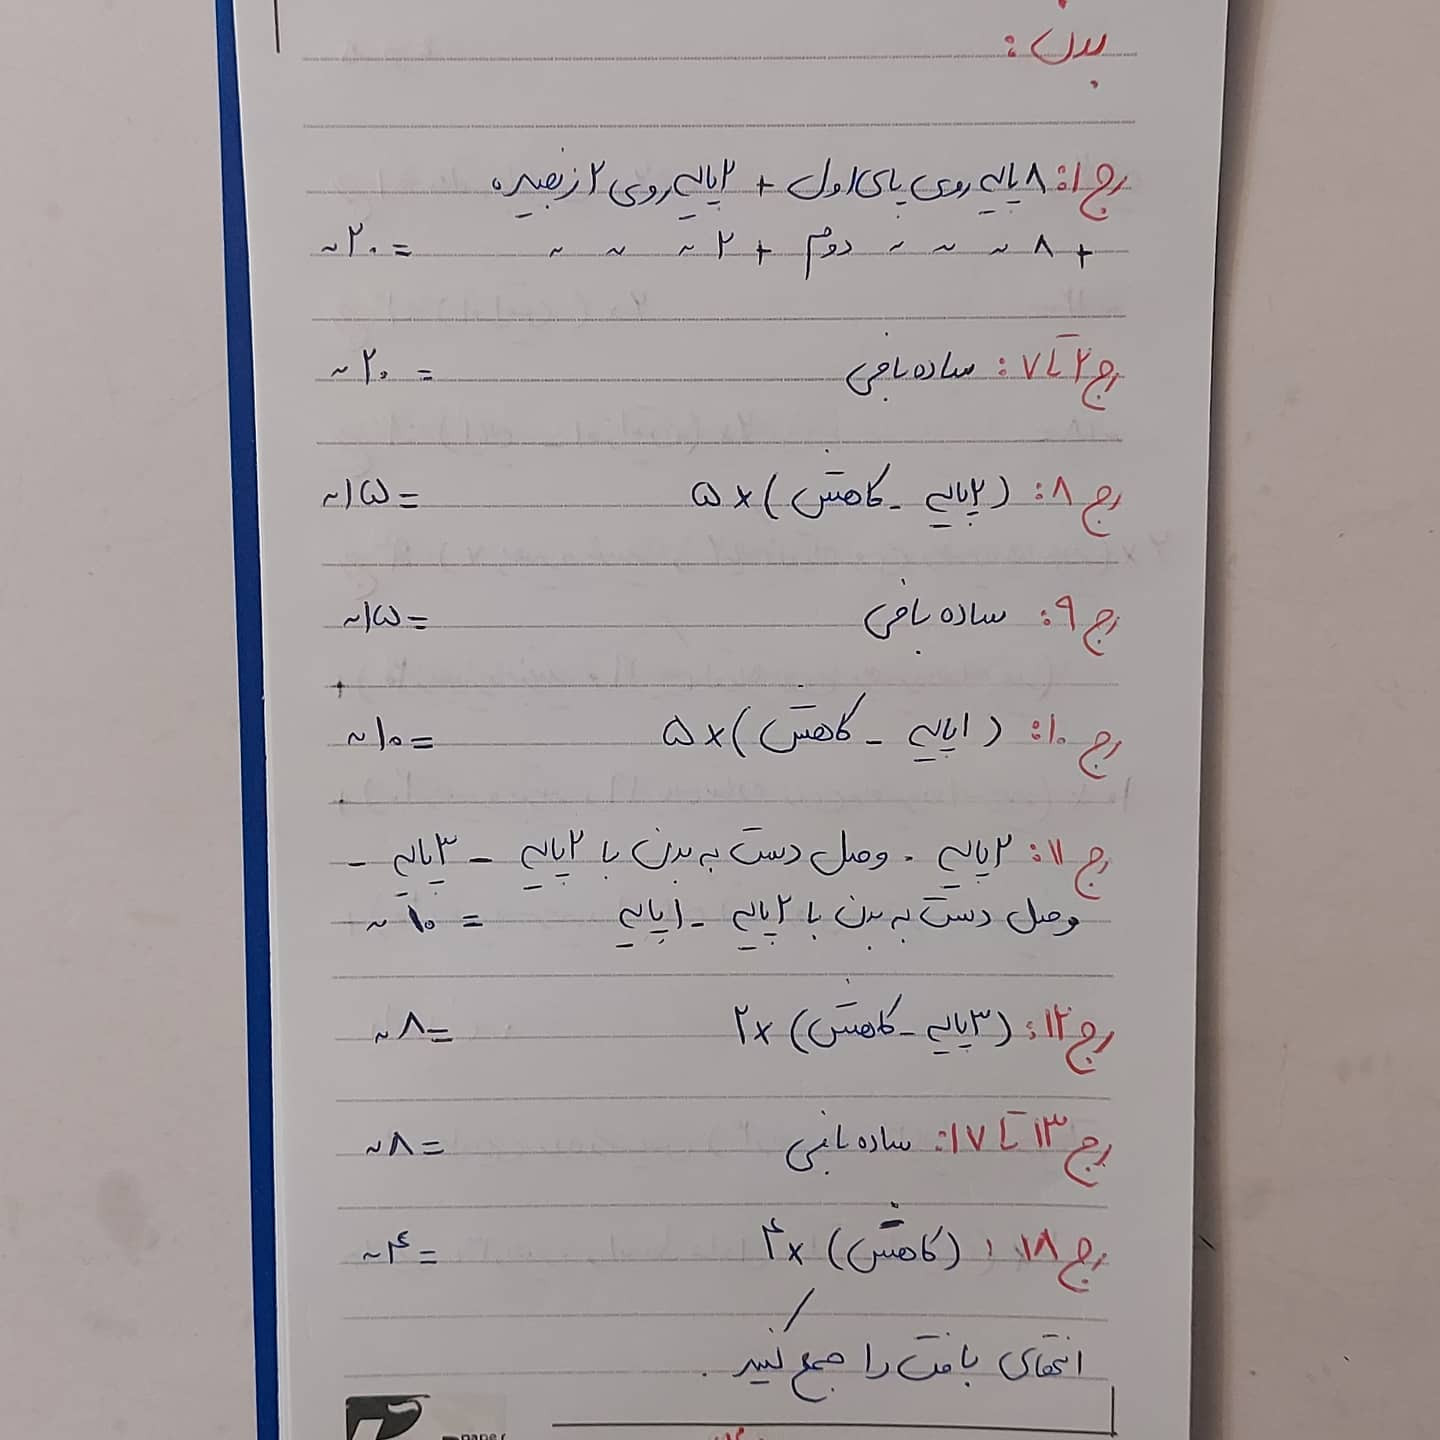 بدن:
رج ۱: ۸ پایه روی پای اول + ۲ پایه روی ۲ زنجیره
+ ۸ ~ ~ ~ دوم + ۲ ~ ~ ~ = ۲۰ ~
رج ۲ تا ۷: ساده بافی = ۲۰ ~
رج ۸: (۲ پایه - کاهش) × ۵ = ۱۵ ~
رج ۹: ساده بافی = ۱۵ ~
رج ۱۰: (۱ پایه - کاهش) × ۵ = ۱۰ ~
رج ۱۱: ۲ پایه - وصل دست به بدن با ۲ پایه - ۳ پایه -
وصل دست به بدن با ۲ پایه - ۱ پایه = ۱۰ ~
رج ۱۲: (۳ پایه - کاهش) × ۲ = ۸ ~
رج ۱۳ تا ۱۷: ساده بافی = ۸ ~
رج ۱۸: (کاهش) × ۴ = ۴ ~
انتهای بافت را جمع کنید.